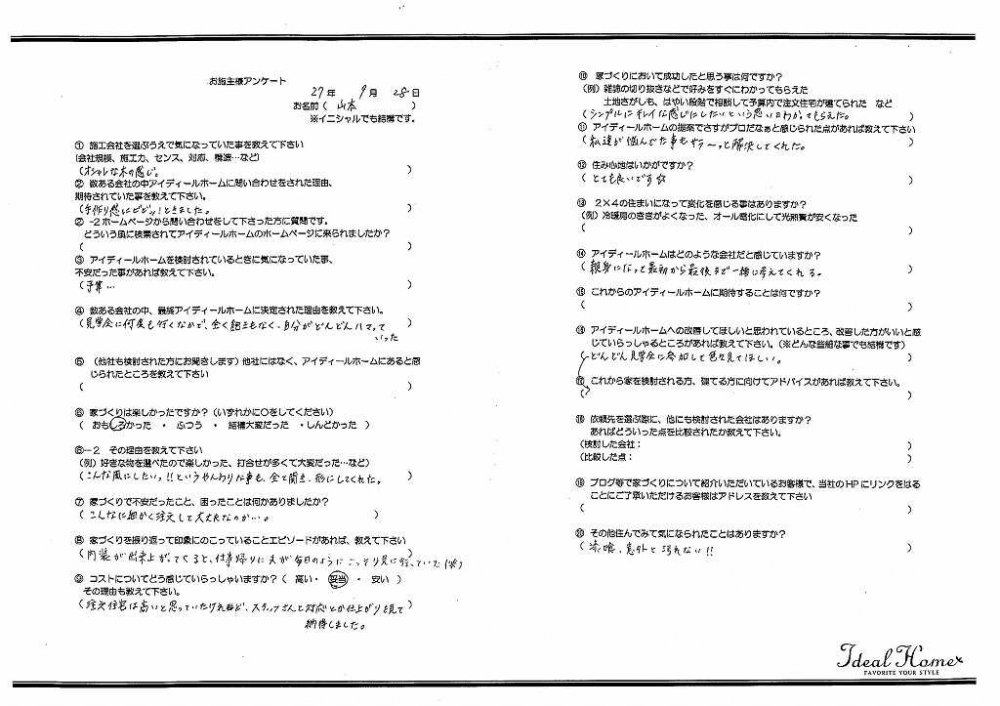 お施主様アンケート
27年 9月 28日
お名前( 山本 )
※イニシャルでも結構です。
① 施工会社を選ぶうえで気になっていた事を教えて下さい
(会社規模、施工力、センス、対応、構造…など)
(オシャレな木の感じ。 )
② 数ある会社の中アイディールホームに問い合わせをされた理由、
期待されていた事を教えて下さい。
(手作り感にビビッ!ときました。 )
②-2ホームページから問い合わせをして下さった方に質問です。
どういう風に検索されてアイディールホームのホームページに来られましたか?
( )
③ アイディールホームを検討されているときに気になっていた事、
不安だった事があれば教えて下さい。
(予算… )
④ 数ある会社の中、最終アイディールホームに決定された理由を教えて下さい。
(見学会に何度も行くなかで、全く飽きもなく、自分がどんどんハマって
いった )
⑤ (他社も検討された方にお聞きします)他社にはなく、アイディールホームにあると感
じられたところを教えて下さい
( )
⑥ 家づくりは楽しかったですか?(いずれかに〇をしてください)
( おもしろかった ・ ふつう ・ 結構大変だった ・しんどかった )
⑥-2 その理由を教えて下さい
(例)好きな物を選べたので楽しかった、打合せが多くて大変だった…など)
(こんな風にしたい!!というやんわりな事も、全て聞き、形にしてくれた。 )
⑦ 家づくりで不安だったこと、困ったことは何かありましたか?
(こんなに細かく注文して大丈夫なのか…。 )
⑧ 家づくりを振り返って印象にのこっていることエピソードがあれば、教えて下さい
(内装が出来上がってくると、仕事帰りに夫が毎日のようにこっそり見に行っていた(笑)
⑨ コストについてどう感じていらっしゃいますか?( 高い・ 妥当 ・ 安い )
その理由も教えて下さい。
(注文住宅は高いと思っていたけれど、スタッフさんの対応とか仕上がりを見て )
納得しました。
⑩ 家づくりにおいて成功したと思う事は何ですか?
(例) 雑誌の切り抜きなどで好みをすぐにわかってもらえた
土地さがしも、はやい段階で相談して予算内で注文住宅が建てられた など
(シンプルにキレイな感じにしたいという思いをわかってもらえた。 )
⑪ アイディールホームの提案でさすがプロだなぁと感じられた点があれば教えて下さい
(私達が悩んでた事もサラ〜っと解決してくれた。 )
⑫ 住み心地はいかがですか?
( とても良いです☆ )
⑬ 2×4の住まいになって変化を感じる事はありますか?
(例)冷暖房のききがよくなった、オール電化にして光熱費が安くなった
( )
⑭ アイディールホームはどのような会社だと感じていますか?
( 親身になって最初から最後まで一緒に考えてくれる。 )
⑮ これからのアイディールホームに期待することは何ですか?
( )
⑯ アイディールホームへの改善してほしいと思われているところ、改善した方がいいと感
じていらっしゃるところがあれば教えて下さい。(※どんな些細な事でも結構です)
( )
⑰ これから家を検討される方、建てる方に向けてアドバイスがあれば教えて下さい。
(どんどん見学会に参加して色々見てほしい。 )
⑱ 依頼先を選ぶ際に、他にも検討された会社はありますか?
あればどういった点を比較されたか教えて下さい。
(検討した会社: )
(比較した点: )
⑲ ブログ等で家づくりについて紹介いただいているお客様で、当社のHPにリンクをはる
ことにご了承いただけるお客様はアドレスを教えて下さい
( )
⑳ その他住んでみて気になられたことはありますか?
( 漆喰、意外と汚れない!! )
Ideal Home
FAVORITE YOUR STYLE